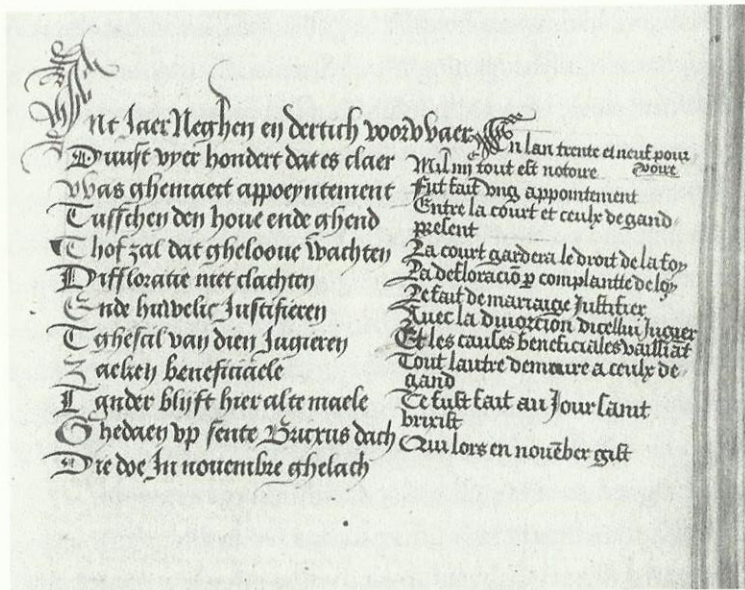 Int Jaer Neghen en dertich voorwaer
Duust vyer hondert dat es claer
Was ghemaect appoeyntement
Tusschen den hove ende ghend
Thof zal dat gheloove Wachten
Diffloratie met clachten
Ende huwelic Justifieren
Tghescil van dien Jugieren
Zaeken beneficiaele
Tander blijft hier al te maele
Ghedaen up sente Brixius dach
Die doe In novembre ghelach
En lan trente et neuf pour
voire
Mil iiij tout est notoire
Fut fait ung appointement
Entre la court et ceulx de gand
present
La court gardera le droit de la foy
La defloraciõ p complantte de loy
Le fait de mariaige Justifier
Avec la divortion dicellui Jugier
Et les causes beneficiales vaillãt
Tout lautre demeure a ceulx de
gand
Ce fust fait au Jour saint
brixist
Qui lors en novẽber gist